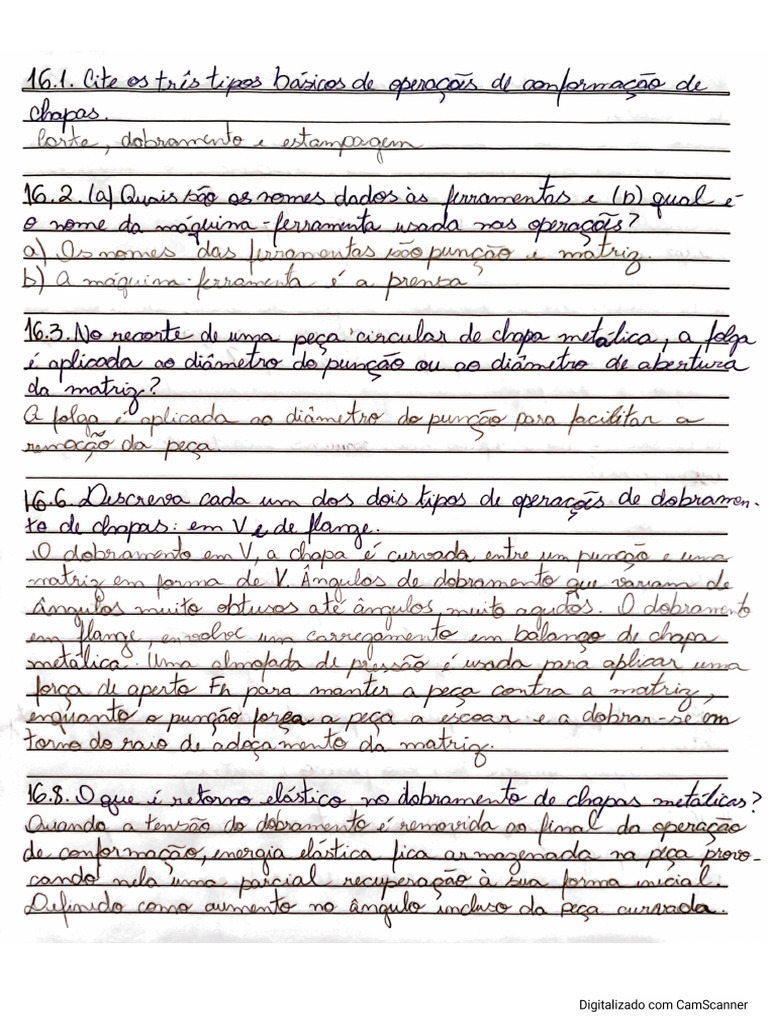 16.1. Cite os três tipos básicos de operações de conformação de
chapas.
Corte, dobramento e estampagem
16.2. (a) Quais são os nomes dados às ferramentas e (b) qual é
o nome da máquina-ferramenta usada nas operações?
a) Os nomes das ferramentas são punção e matriz.
b) A máquina-ferramenta é a prensa
16.3. No recorte de uma peça circular de chapa metálica, a folga
é aplicada ao diâmetro do punção ou ao diâmetro de abertura
da matriz?
A folga é aplicada ao diâmetro do punção para facilitar a
remoção da peça.
16.6. Descreva cada um dos dois tipos de operações de dobramen-
to de chapas: em V e de flange.
O dobramento em V, a chapa é curvada entre um punção e uma
matriz em forma de V. Ângulos de dobramento que variam de
ângulos muito obtusos até ângulos muito agudos. O dobramento
em flange, envolve um carregamento em balanço de chapa
metálica. Uma almofada de pressão é usada para aplicar uma
força de aperto Fh para manter a peça contra a matriz,
enquanto o punção força a peça a escoar e a dobrar-se em
torno do raio de adoçamento da matriz.
16.8. O que é retorno elástico no dobramento de chapas metálicas?
Quando a tensão do dobramento é removida ao final da operação
de conformação, energia elástica fica armazenada na peça provo-
cando nela uma parcial recuperação à sua forma inicial.
Definido como aumento no ângulo incluso da peça curvada.
Digitalizado com CamScanner